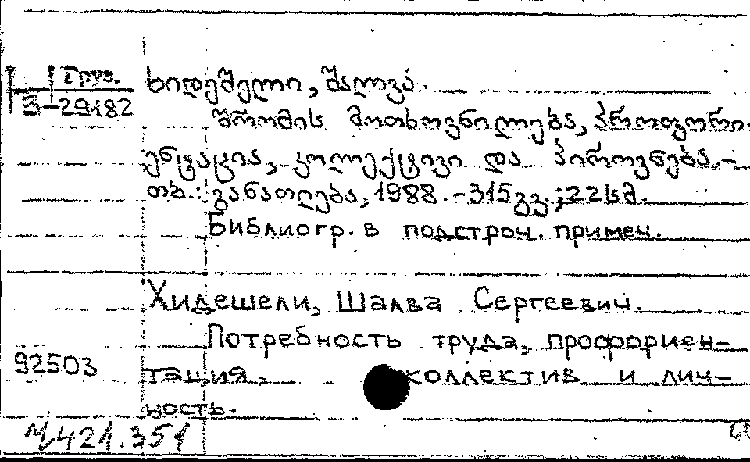 Груз.
3-29182
ხიდეშელი, შალვა.
შრომის მოთხოვნილება, პროფორი-
ენტაცია, კოლექტივი და პიროვნება.-
თბ.: განათლება, 1988.-315გვ.; 22სმ.
Библиогр. в подстроч. примеч.
Хидешели, Шалва Сергеевич.
Потребность труда, профориен-
92503
тация, коллектив и лич-
ность.
421.351